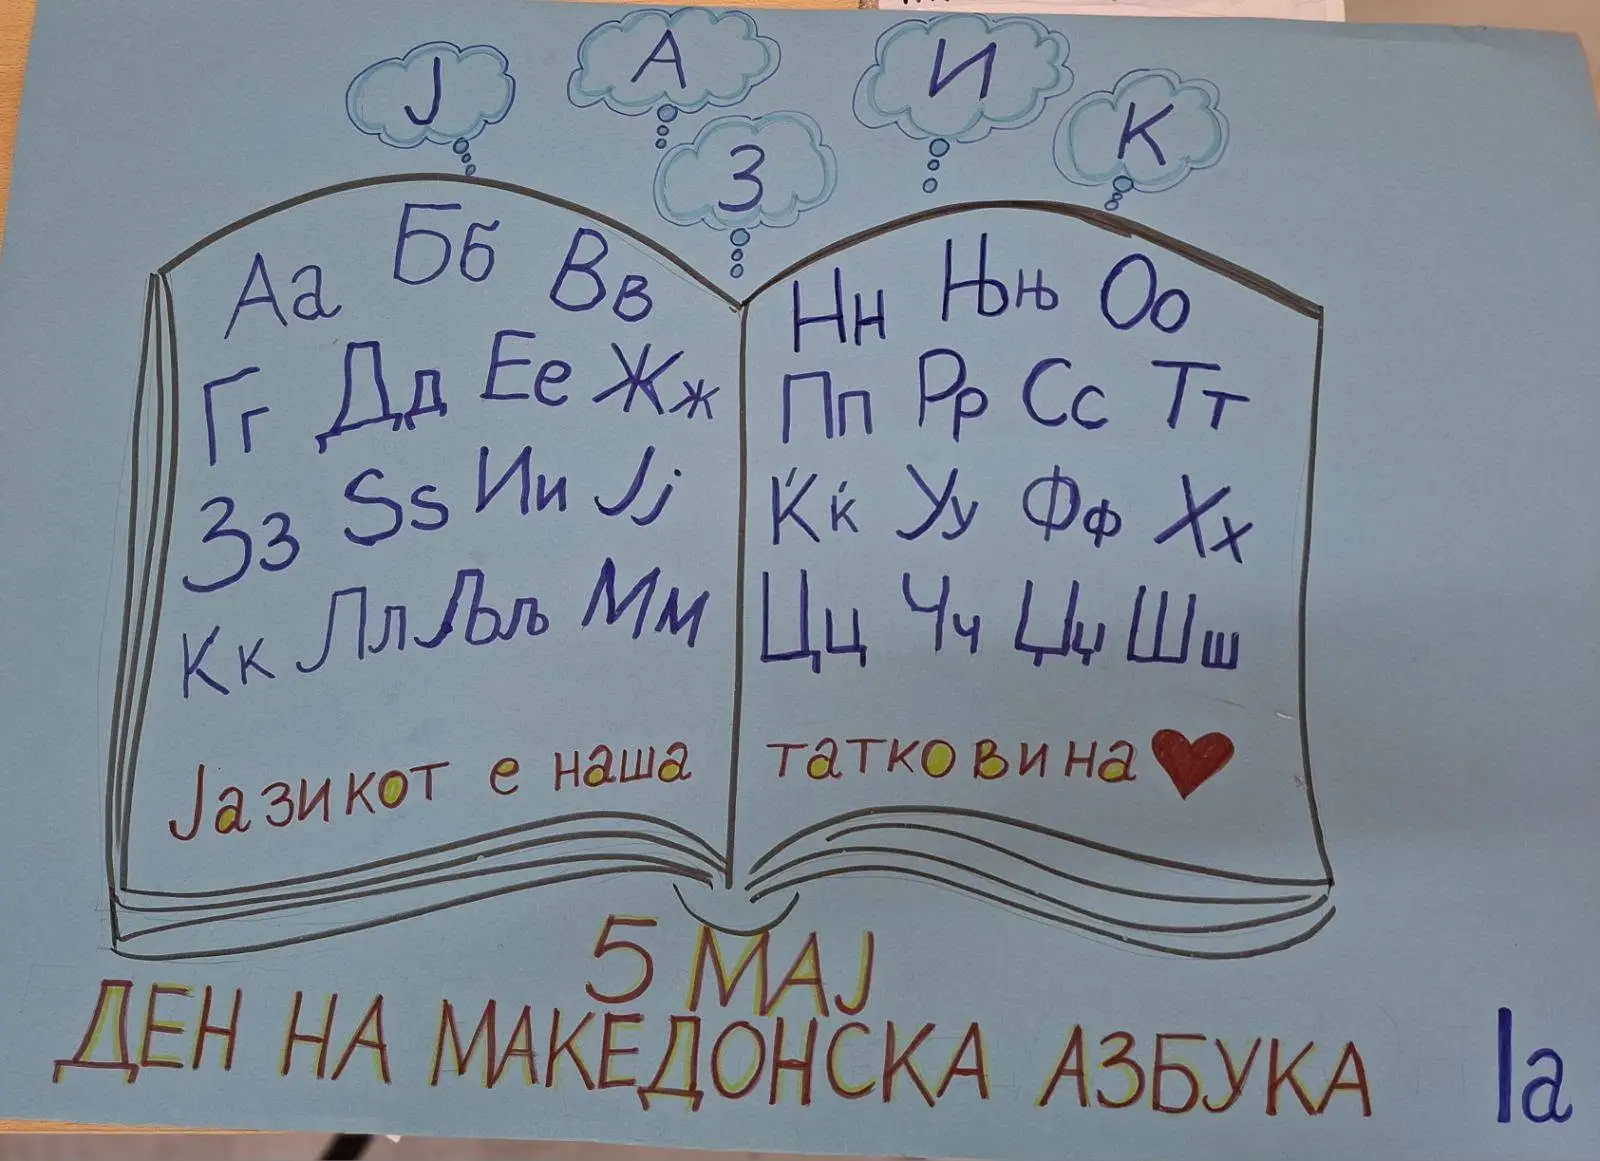 Ј А З И К
Аа Бб Вв
Гг Дд Ее Жж
Зз Ѕѕ Ии Јј
Кк Лл Љљ Мм
Нн Њњ Оо
Пп Рр Сс Тт
Ќќ Уу Фф Хх
Цц Чч Џџ Шш
Јазикот е наша татковина
5 МАЈ
ДЕН НА МАКЕДОНСКА АЗБУКА
Iа